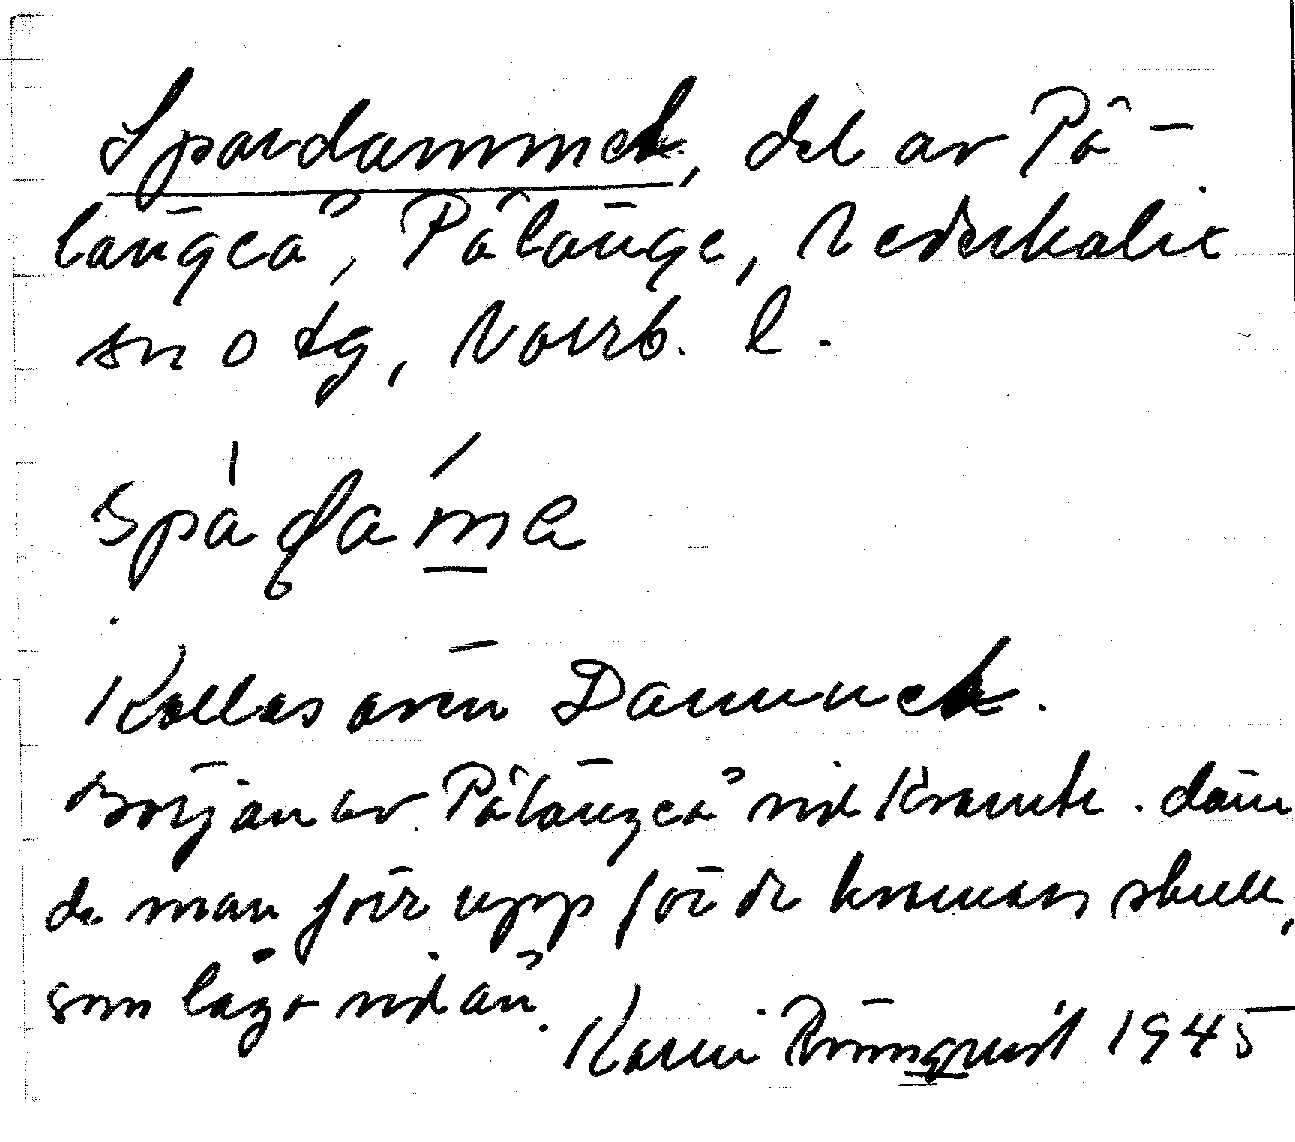 Spardammen, del av På-
längeå, Pålänge, Nederkalix
sn o tg, Norrb. l.
spàɖám̲e
Kallas även Dammen.
Början av Pålängeå vid Kvarnb. däm
de man förr upp för de kvarnars skull,
som lågo vid ån.
Karin Rönnquist 1945